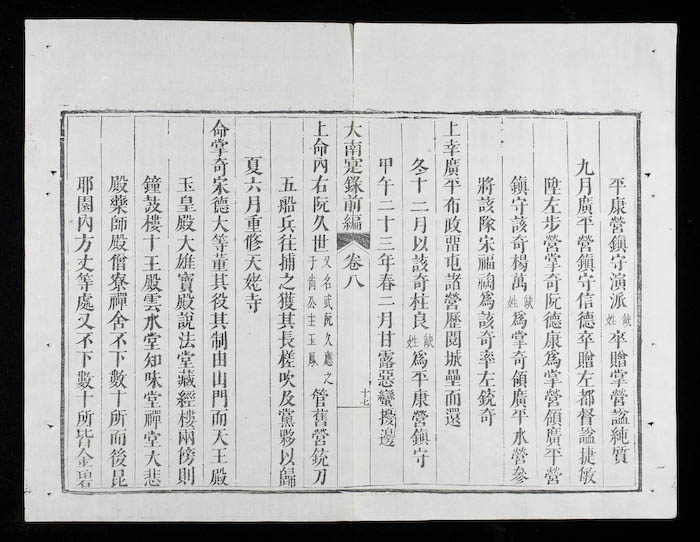 平康營鎮守演派缺姓卒贈掌營諡純質
九月廣平營鎮守信德卒贈左都督諡捷敏
陞左步營掌奇阮德康為掌營領廣平營
鎮守該奇楊萬缺姓為掌奇領廣平水營參
將該隊宋福禍為該奇率左銃奇
上幸廣平布政畱屯諸營歷閱城壘而還
冬十二月以該奇柱良缺姓為平康營鎮守
甲午二十三年春二月甘露惡蠻擾邊
大南寔錄前編
卷八
十七
上命內右阮久世又名或阮久應之
于尚公主玉鳳管舊營銃刀
五船兵往捕之獲其長槎吹及黨夥以歸
夏六月重修天姥寺
命掌奇宋德大等董其役其制由山門而天王殿
玉皇殿大雄寶殿說法堂藏經樓兩傍則
鐘鼓樓十王殿雲水堂知味堂禪堂大悲
殿藥師殿僧寮禪舍不下數十所而後昆
耶園內方丈等處又不下數十所皆金碧